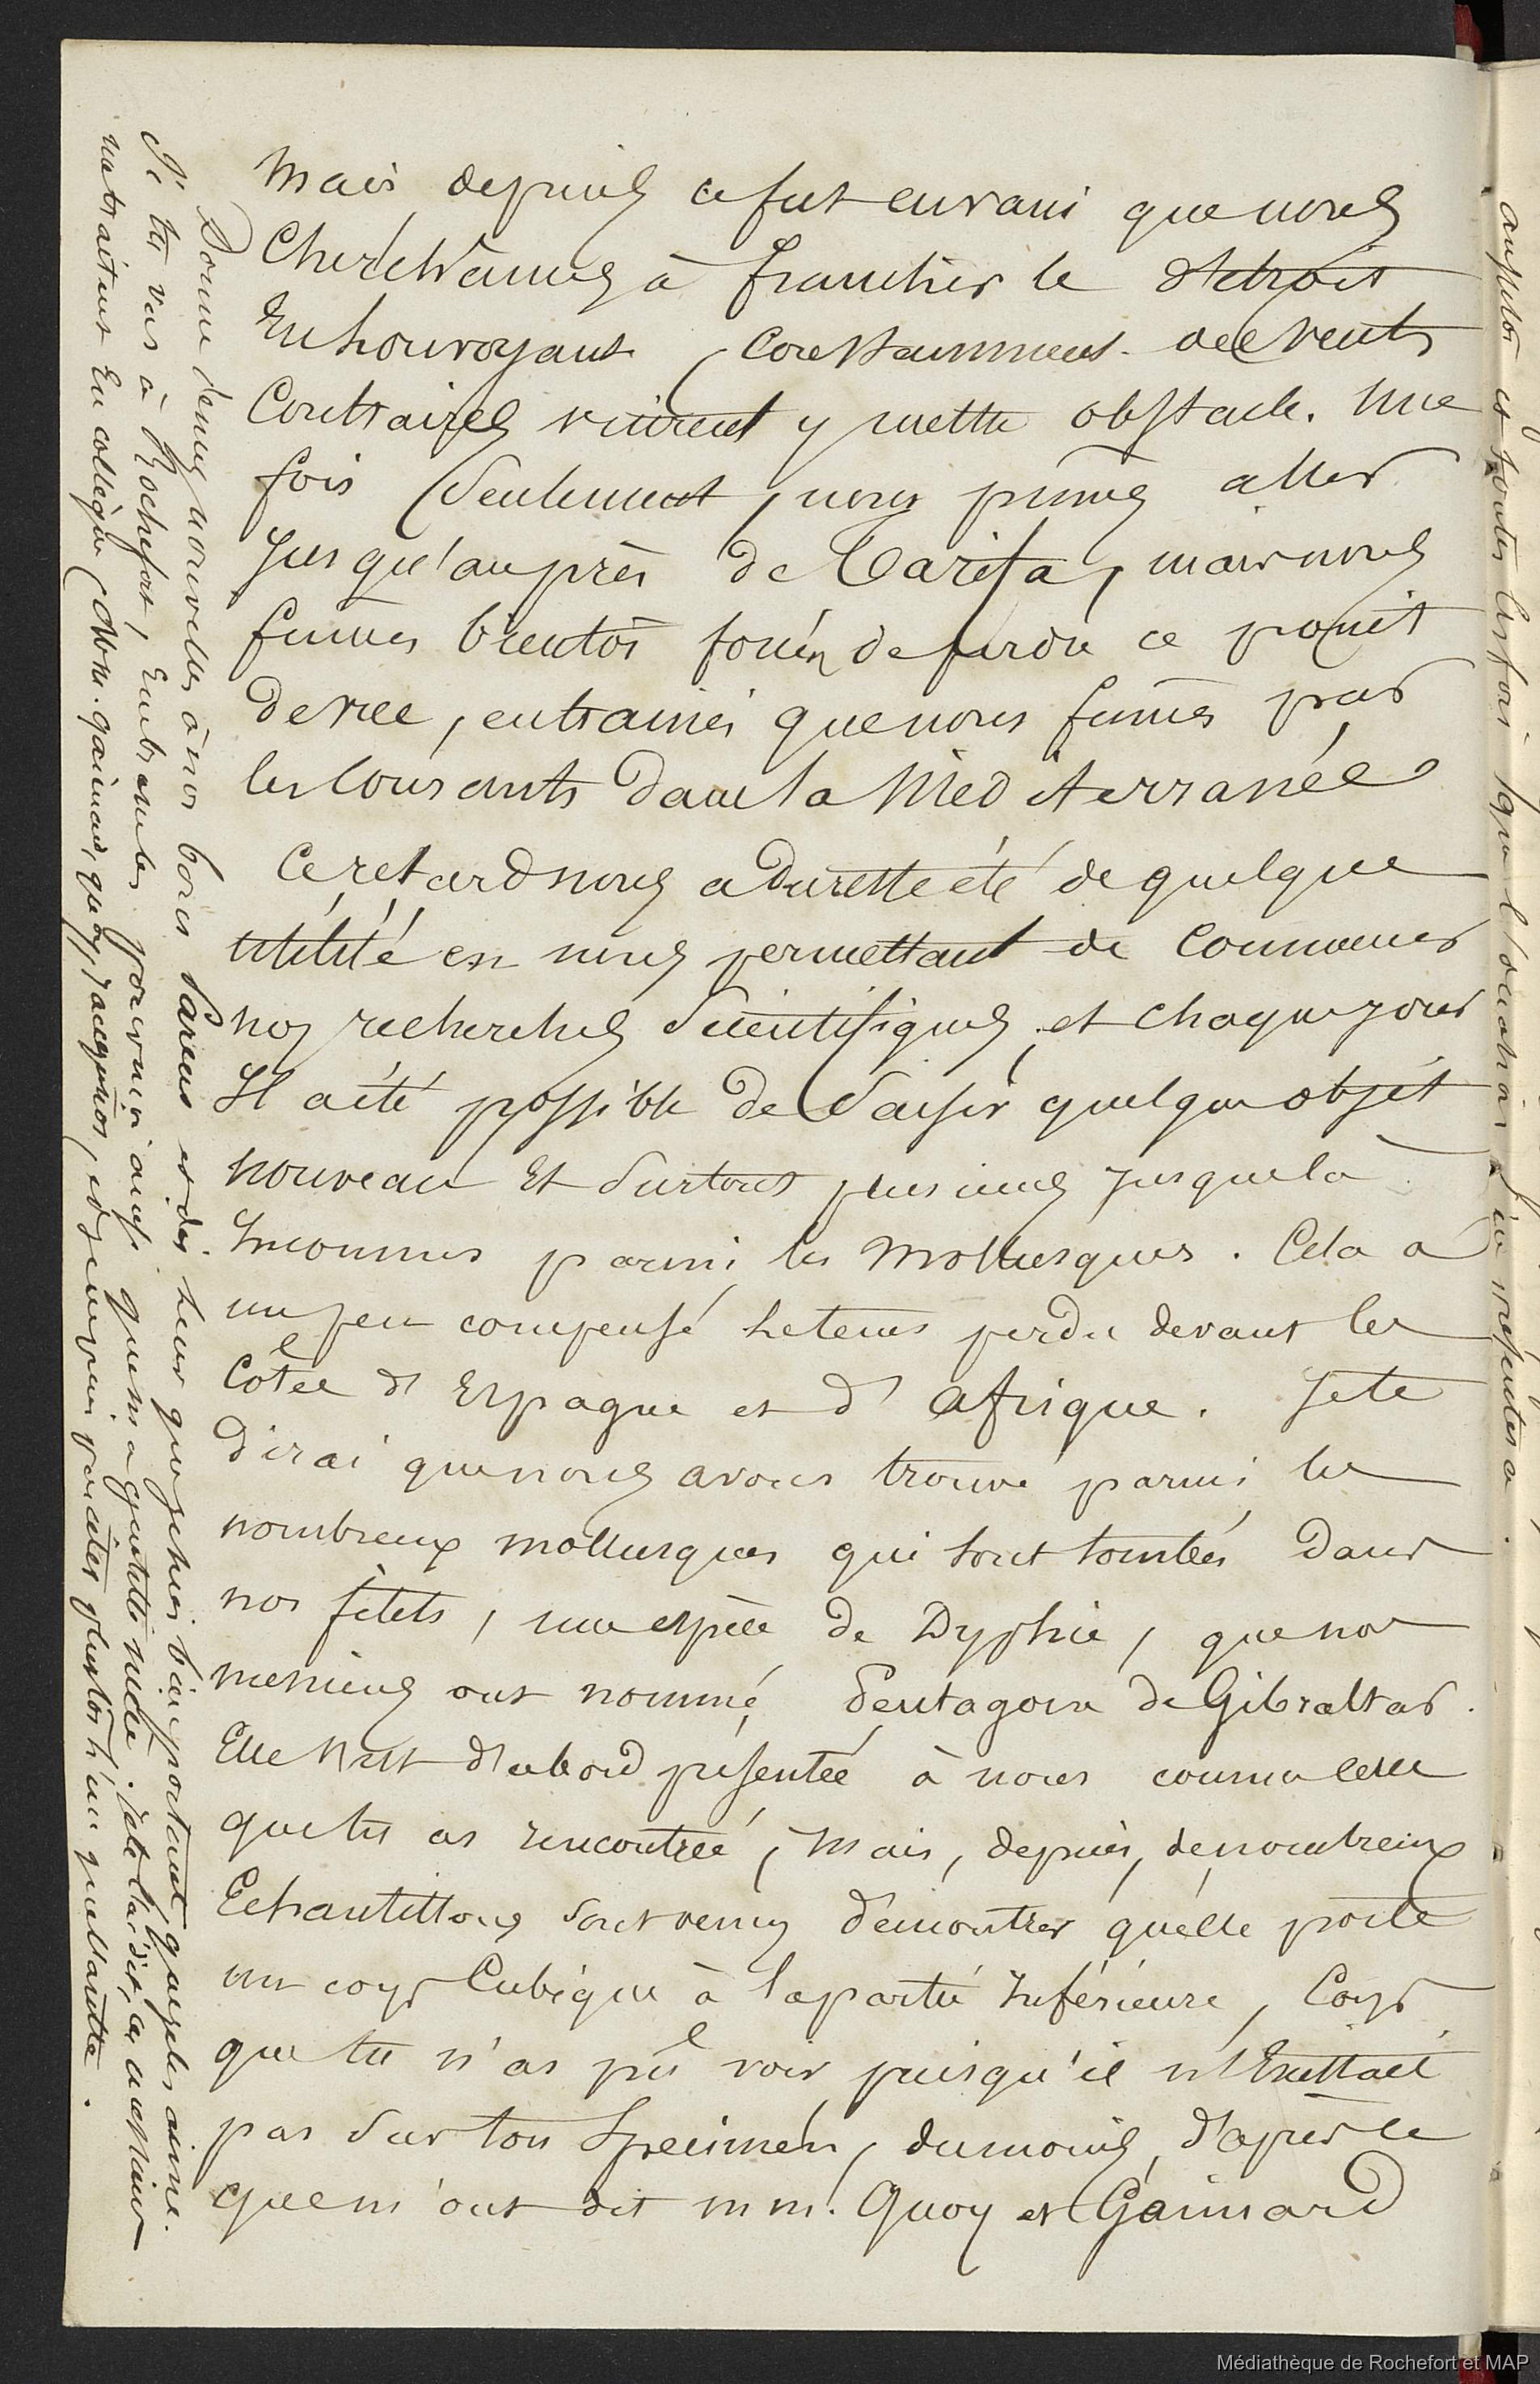 Mais depuis ce fut en vain que nous
Cherchâmes à franchir le détroit
En louvoyant, Constamment des vents
Contraires vinrent y mettre obstacle. Une
fois Seulement, nous pûmes aller
Jusqu'auprès de Tarifa, mais nous
fumes bientôt forcés de perdre ce point
de vue, entrainés que nous fumes par
les Courants dans la Méditerranée
Ce retard nous a du reste été de quelque
utilité en nous permettant de Commencer
nos recherches Scientifiques, et chaque jour
Il a été possible de Saisir quelque objet
nouveau Et Surtout plusieurs jusque là
Inconnus parmi les Mollusques. Cela a
un peu compensé le tems perdu devant les
Côtes d'Espagne et d'afrique. Je te
dirai que nous avons trouvé parmi les
nombreux mollusques qui sont tombés dans
nos filets, une espèce de Dyphie, que nos
messieurs ont nommé Pentagone de Gibraltar.
Elle s'est d'abord présentée à nous comme celle
que tu as rencontrée, Mais, depuis, de nombreux
Echantillons sont venus démontrer qu'elle porte
un corps Cubique à la partie Inférieure, Corps
que tu n'as pû voir puisqu'il n'Existait
pas sur ton Specimen, du moins, d'après ce
que m'ont dit m m. Quoy et Gaimard
Donne de mes nouvelles à nos bons Parens et dis leur que je suis bien portant que je les aime.
Si tu vas à Rochefort, Embrasse les pour moi aussi
qu'on a quitté
Je te l'ai dit, ces messieurs
me traitent En collègue (Mm. gaimard, quoy, Jacquinot,
plustôt